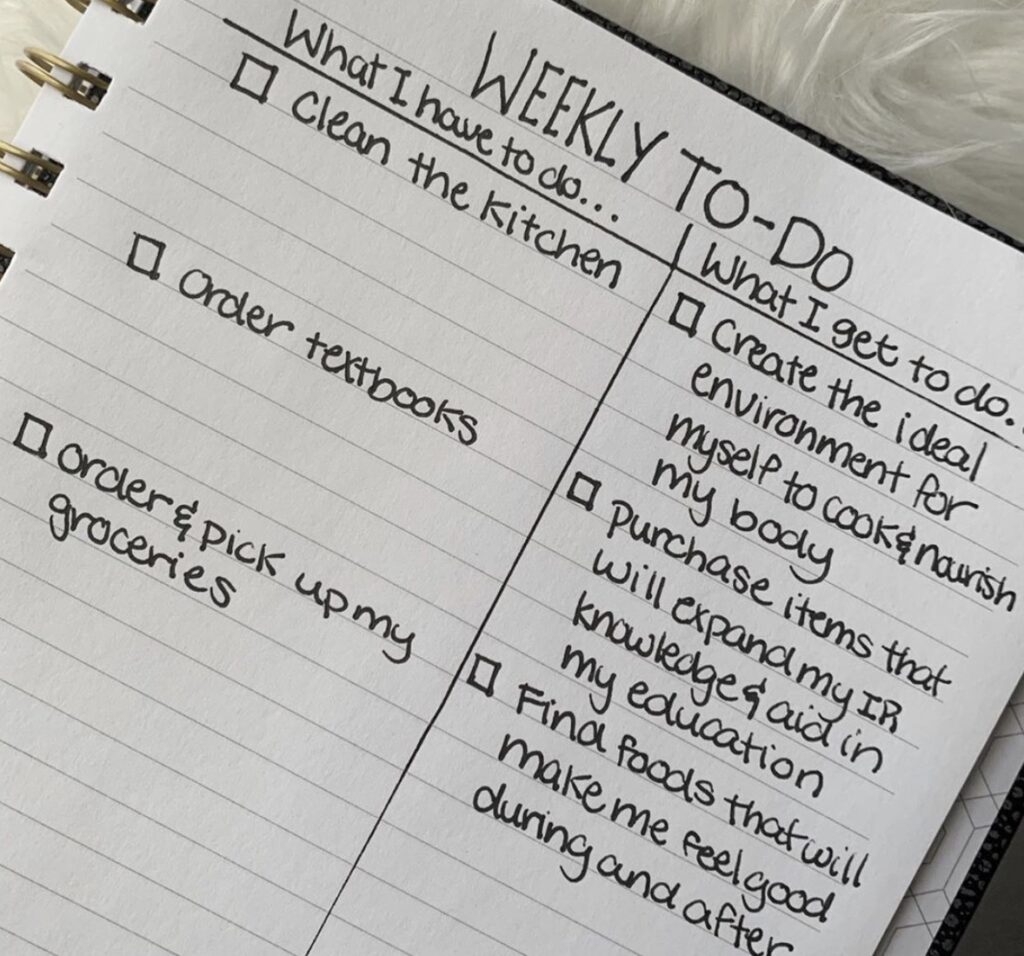 WEEKLY TO-DO
What I have to do...
Clean the Kitchen
Order textbooks
Order & pick up my
groceries
What I get to do...
Create the ideal
environment for
myself to cook & nourish
my body
Purchase items that
will expand my IR
knowledge & aid in
my education
Find foods that will
make me feel good
during and after